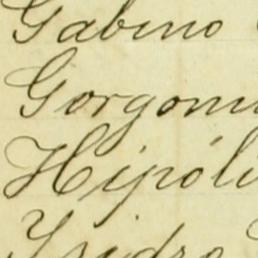 Gabino
Gorgoni
Hipóli
Ysidro